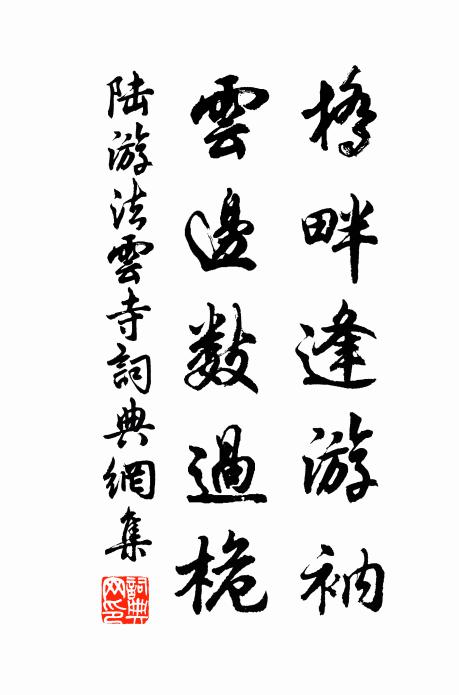 橋畔逢游衲
雲邊數過桅
陆游法雲寺詞典網集
詞典网印